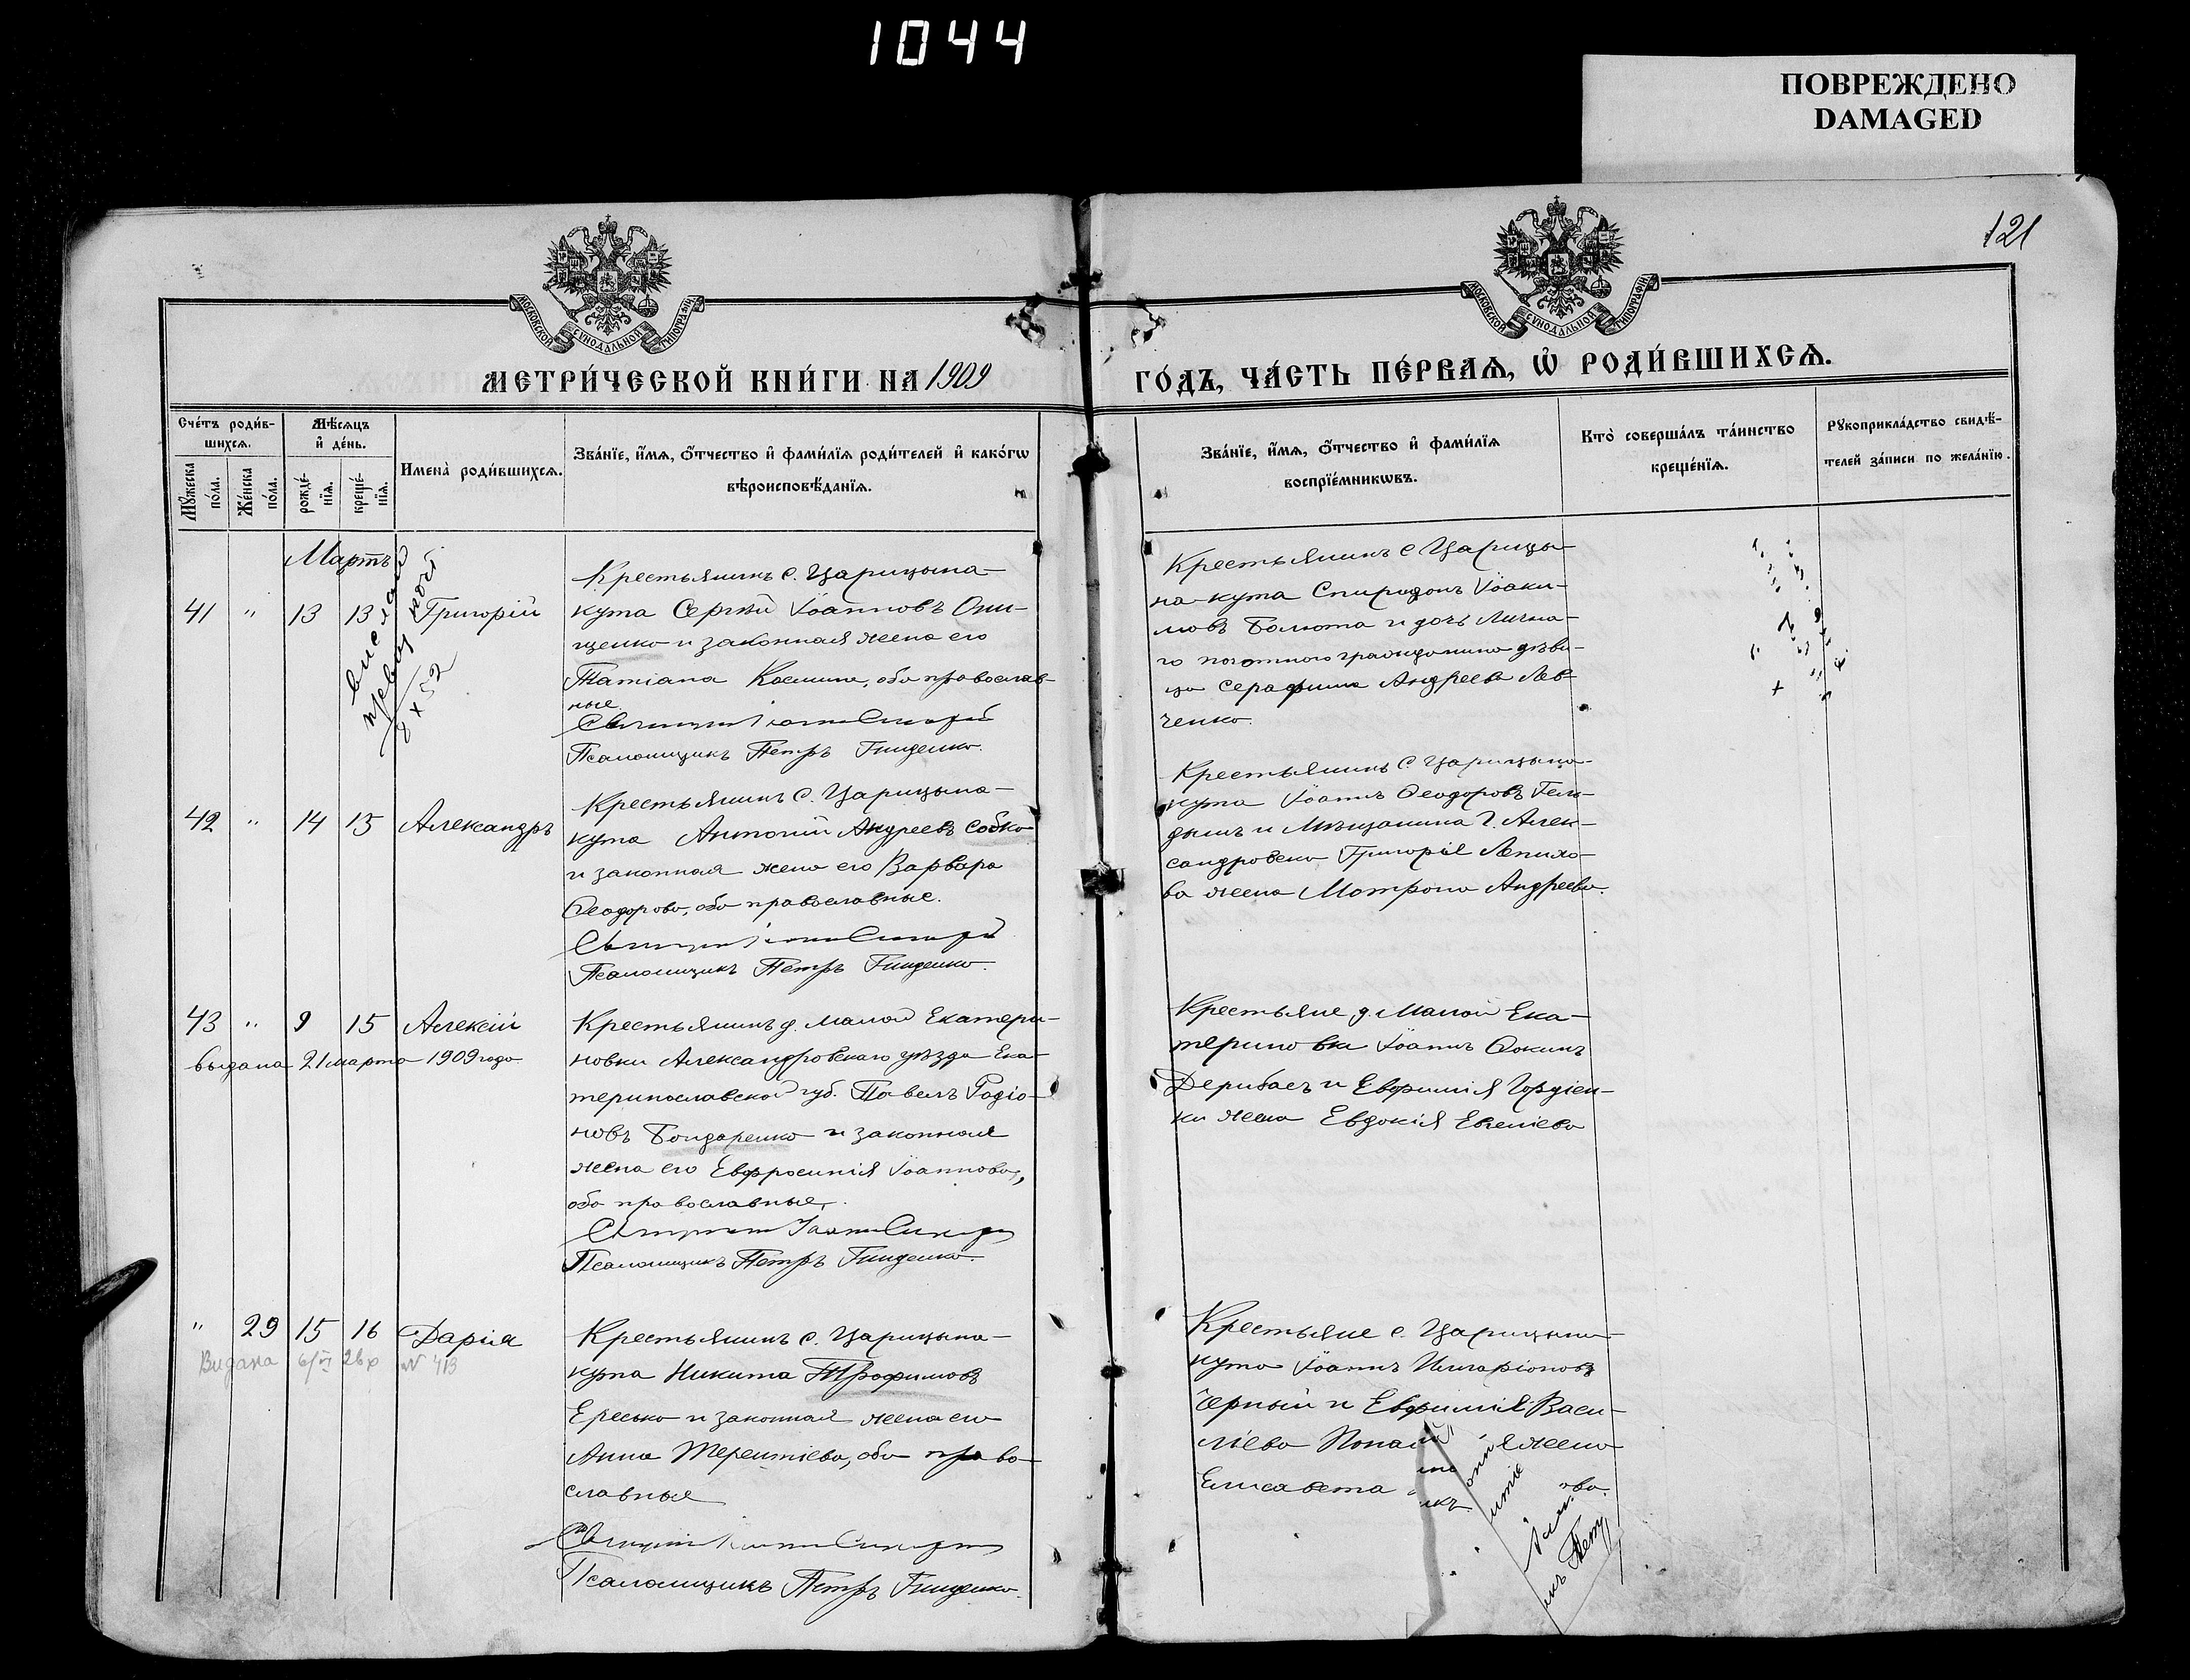 1044
ПОВРЕЖДЕНО
DAMAGED
121
МОСКОВСКОЙ СУНОДАЛЬНОЙ ТИПОГРАФІИ
МОСКОВСКОЙ СУНОДАЛЬНОЙ ТИПОГРАФІИ
МЕТРИ́ЧЕСКОЙ КНИ́ГИ НА 1909
ГО́ДЪ, ЧА́СТЬ ПЕ́РВАѦ, Ѡ РОДИ́ВШИХСѦ.
Сче́тъ роди́в-
шихсѧ.
Мꙋжеска
по́ла.
Же́нска
по́ла.
Мѣ́сѧцъ
и҆ де́нь.
рожде́-
нїѧ.
креще́-
нїѧ.
Имена̀ роди́вшихсѧ.
Зва́нїе, и҆́мѧ, ѻ҆́тчество и҆ фами́лїѧ роди́телей и҆ како́гѡ
вѣроисповѣ́данїѧ.
Зва́нїе, и҆́мѧ, ѻ҆́тчество и҆ фами́лїѧ
воспрїе́мникѡвъ.
Кто̀ соверша́лъ та́инство
креще́нїѧ.
Рꙋкоприкла́дство свидѣ́-
телей за́писи по жела́нїю.
Мартъ
41 " 13 13 Григорій
Крестьянинъ с. Царицына-
кута Сергѣй Іоанновъ Они-
щенко и законная жена его
Татіана Косьмина, оба православ-
ные.
Псаломщикъ Петръ Гниденко.
Крестьянинъ с. Царицы-
на-кута Спиридонъ Іоаки-
мовъ Болюта и дочь Лична-
го почотного гражданина дѣви-
ца Серафима Андреева Лев-
ченко.
42 " 14 15 Александръ
Крестьянинъ с. Царицына-
кута Антоній Андреевъ Собко
и законная жена его Варвара
Ѳеодорова, оба православные.
Псаломщикъ Петръ Гниденко.
Крестьянинъ с. Царицына-
кута Іоаннъ Ѳеодоровъ
и Мѣщанина г. Алек-
сандровска Григорія Лепихо-
ва жена Матрона Андреева.
43 " 9 15 Алексій
выдана 21 марта 1909 года
Крестьянинъ д. Малой Екатери-
новки Александровскаго уѣзда Ека-
теринославской губ. Павелъ Родіо-
новъ Бондаренко и законная
жена его Евфросинія Іоаннова,
оба православные.
Псаломщикъ Петръ Гниденко.
Крестьяне д. Малой Ека-
териновки Іоаннъ Ѳокинъ
Дерибасъ и Евфимія Гордіен-
ки жена Евдокія Евгеніева
" 29 15 16 Дарія
Видана № 413
Крестьянинъ с. Царицына-
кута Никита Трофимовъ
Ересько и законная жена его
Анна Терентіева, оба право-
славные
Псаломщикъ Петръ Гниденко.
Крестьяне с. Царицына-
кута Іоаннъ Иларіоновъ
Чорный и Евфимія Васи-
ліева жена
Елисавета